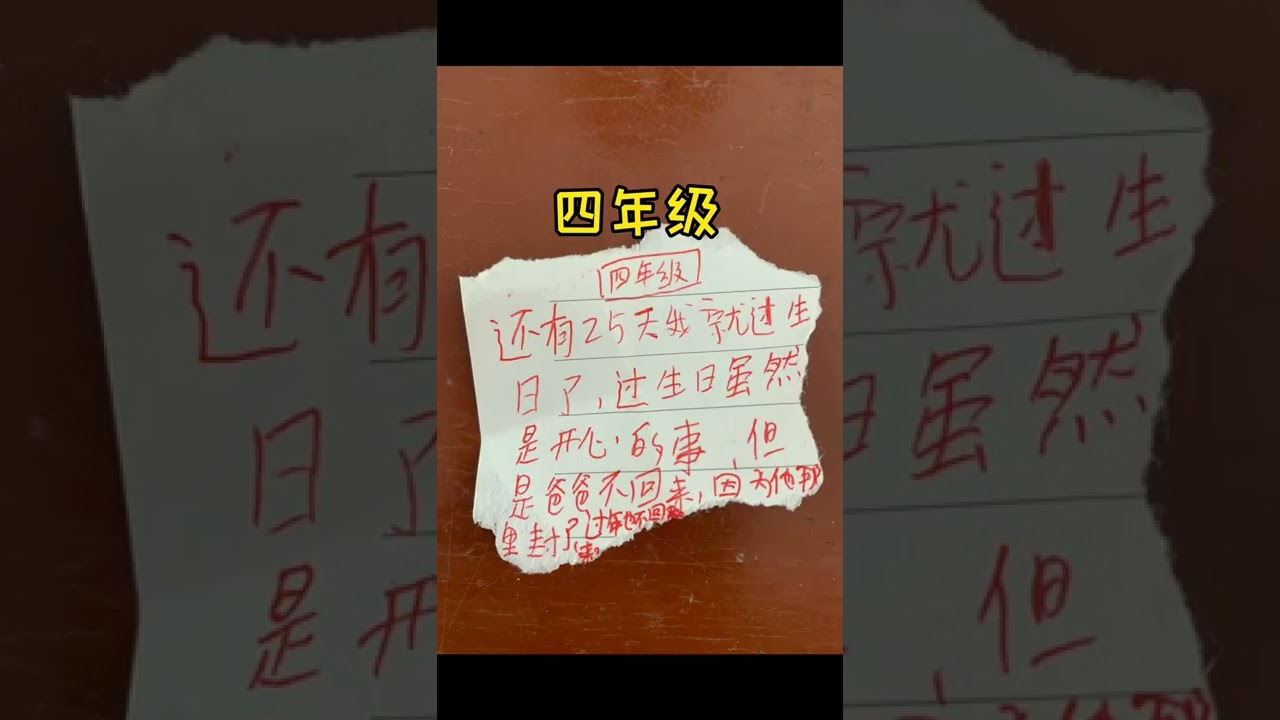 四年级
四年级
还有25天我就过生
日了,过生日虽然
是开心的事,但
是爸爸不回来,因为他那
里封了过年也不回
来